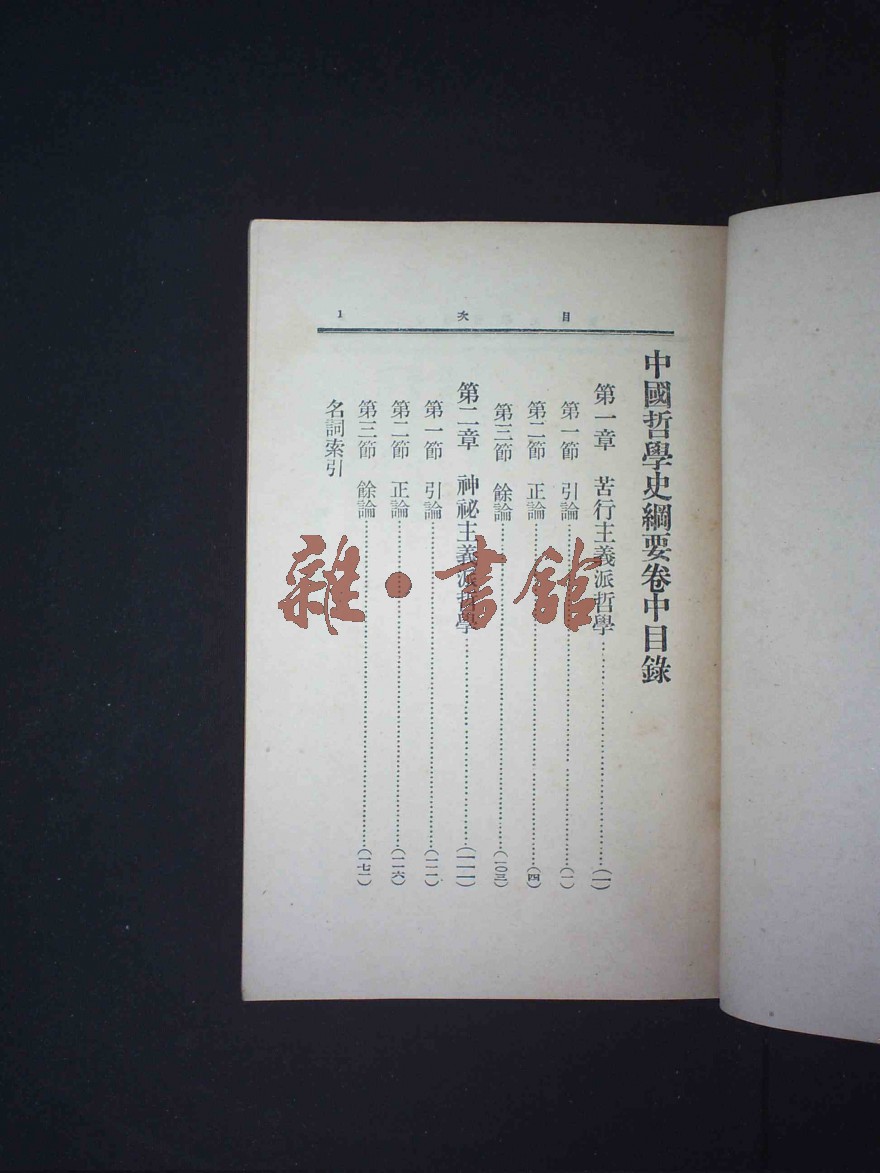 目次 1
中國哲學史綱要卷中目錄
第一章 苦行主義派哲學……(一)
第一節 引論……(一)
第二節 正論……(四)
第三節 餘論……(一〇三)
第二章 神祕主義派哲學……(一一一)
第一節 引論……(一一一)
第二節 正論……(一一六)
第三節 餘論……(一七一)
名詞索引
雜·書館